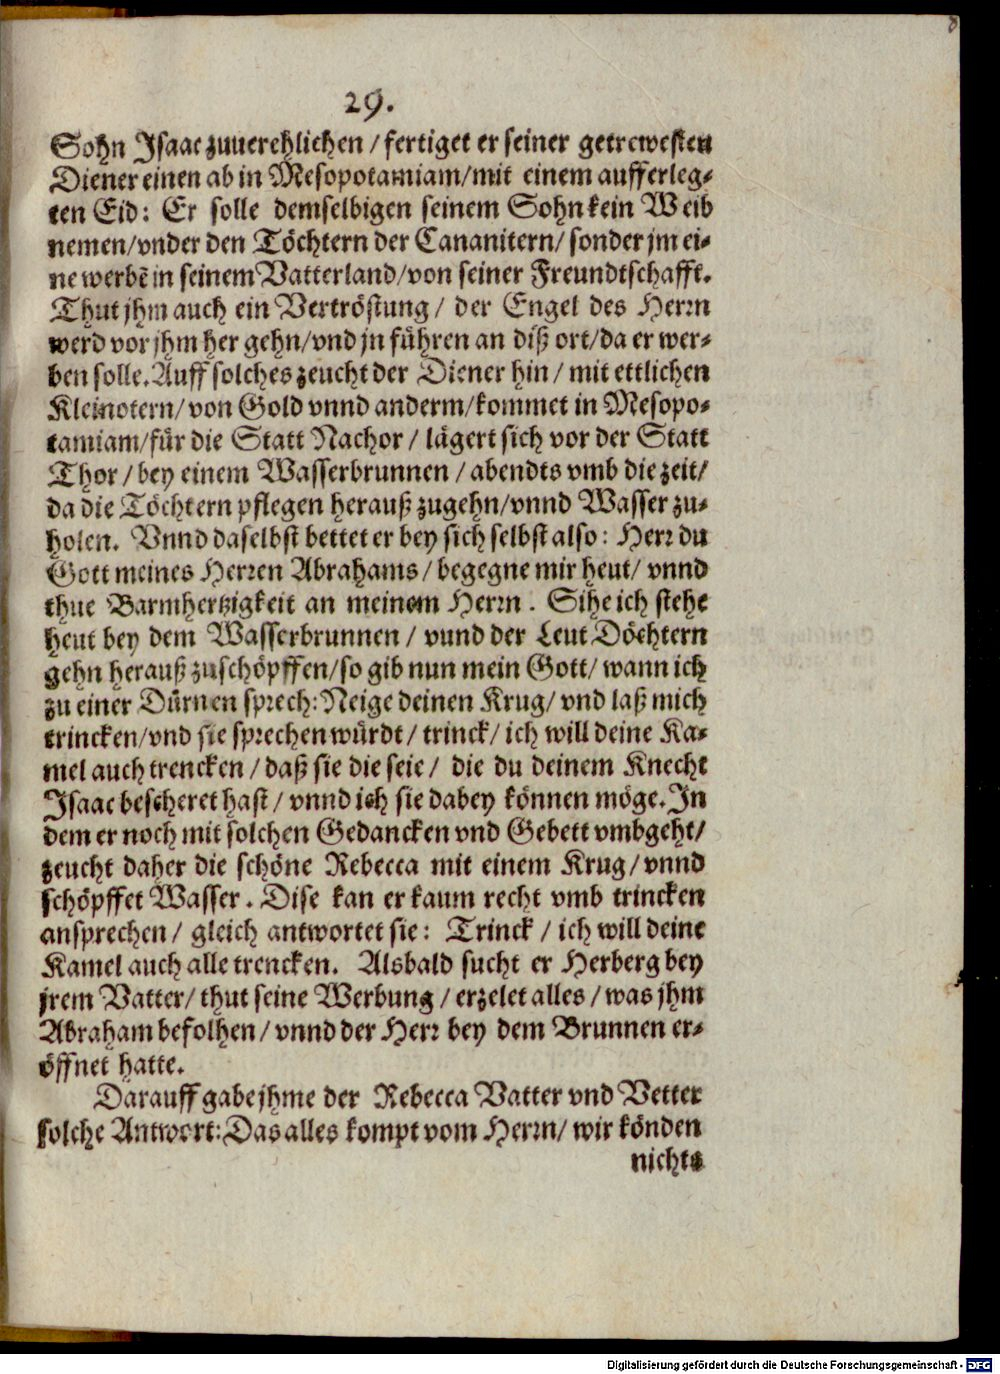 8
29.
Sohn Isaac zuuerehlichen / fertiget er seiner getrewesten
Diener einen ab in Mesopotamiam/mit einem aufferleg-
ten Eid: Er solle demselbigen seinem Sohn kein Weib
nemen/vnder den Töchtern der Cananitern/ sonder jm ei-
ne werbẽ in seinem Vatterland/von seiner Freundtschafft.
Thut jhm auch ein Vertröstung/ der Engel des Herrn
werd vor jhm her gehn/vnd jn führen an diß ort/da er wer-
ben solle. Auff solches zeucht der Diener hin/ mit ettlichen
Kleinotern/ von Gold vnnd anderm/kommet in Mesopo-
tamiam/für die Statt Nachor / lägert sich vor der Statt
Thor / bey einem Wasserbrunnen / abendts vmb die zeit/
da die Töchtern pflegen herauß zugehn/vnnd Wasser zu-
holen. Vnnd daselbst bettet er bey sich selbst also: Herr du
Gott meines Herren Abrahams / begegne mir heut/ vnnd
thue Barmhertzigkeit an meinem Herrn. Sihe ich stehe
heut bey dem Wasserbrunnen / vnnd der Leut Döchtern
gehn herauß zuschöpffen/so gib nun mein Gott/ wann ich
zu einer Dürnen sprech: Neige deinen Krug/ vnd laß mich
trincken/vnd sie sprechen würdt/ trinck/ ich will deine Ka-
mel auch trencken / daß sie die seie/ die du deinem Knecht
Isaac bescheret hast/ vnnd ich sie dabey können möge. In
dem er noch mit solchen Gedancken vnd Gebett vmbgeht/
zeucht daher die schöne Rebecca mit einem Krug/ vnnd
schöpffet Wasser. Dise kan er kaum recht vmb trincken
ansprechen/ gleich antwortet sie: Trinck / ich will deine
Kamel auch alle trencken. Alsbald sucht er Herberg bey
jrem Vatter/ thut seine Werbung/ erzelet alles / was jhm
Abraham befolhen/ vnnd der Herr bey dem Brunnen er-
öffnet hatte.
Darauff gabe jhme der Rebecca Vatter vnd Vetter
solche Antwort: Das alles kompt vom Herrn/ wir könden
nichts
Digitalisierung gefördert durch die Deutsche Forschungsgemeinschaft - DFG